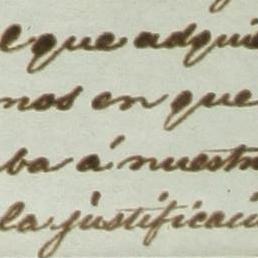 que adqui
nos en que
ba á nuestr
la justificaci